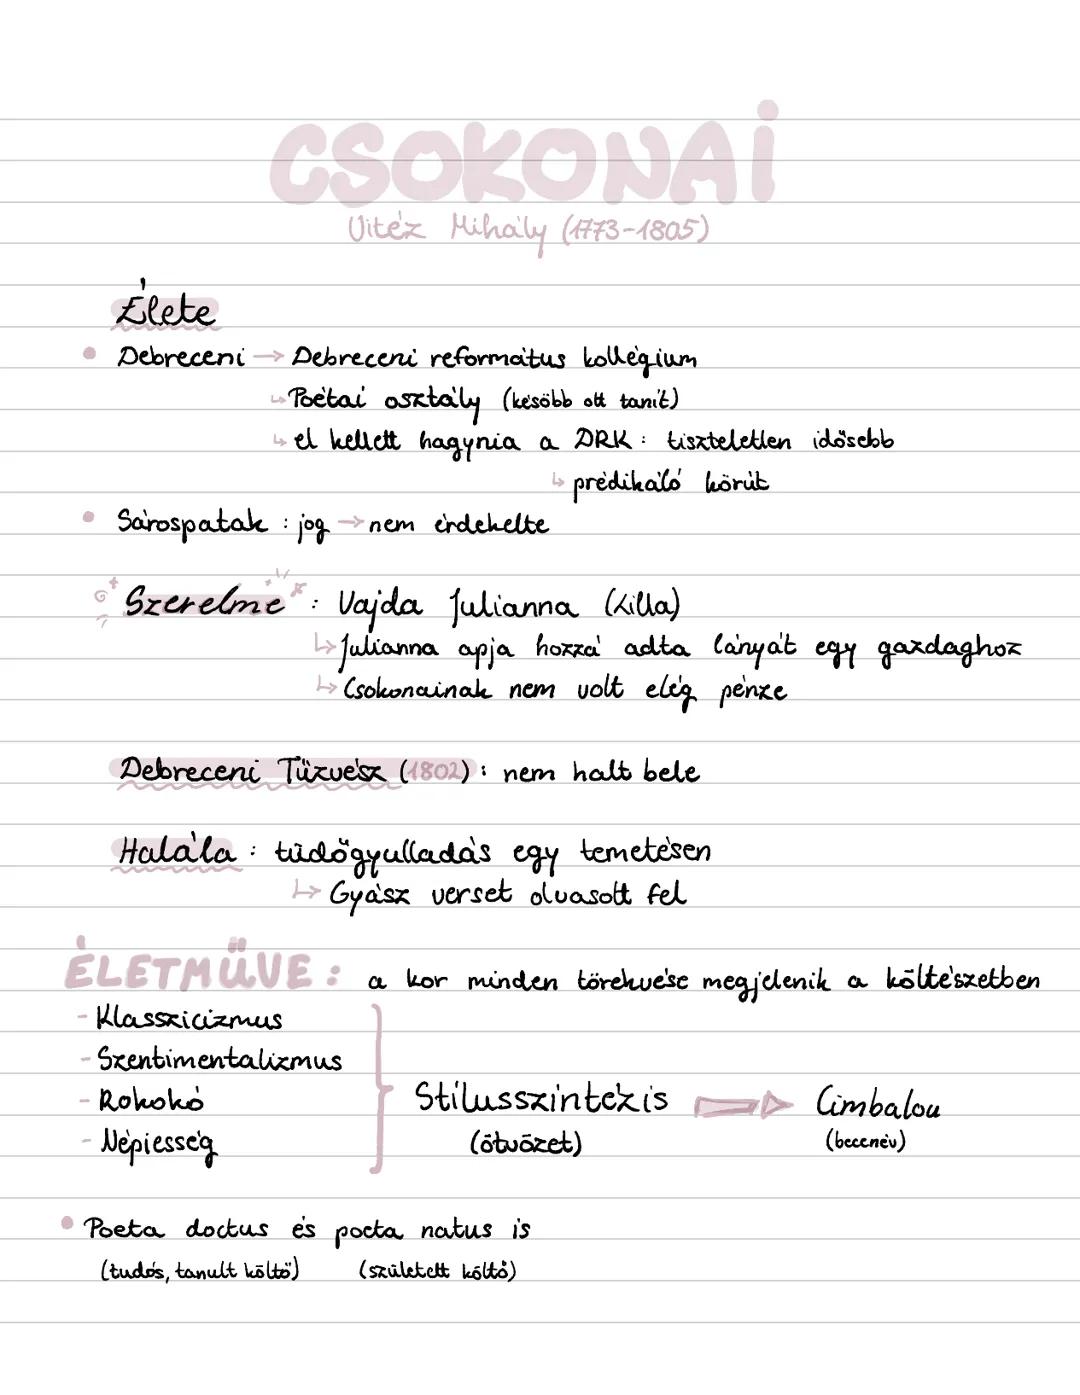 CSOKONAI
Vitéz Mihály (1773-1805)
Élete
• Debreceni → Debreceni református kollégium
↳ Poétai osztály (később ott tanít)
↳ el kellett hagynia a DRK: tiszteletlen idősebb
↳ prédikáló körút
• Sárospatak : jog → nem érdekelte
Szerelme : Vajda Julianna (Lilla)
↳ Julianna apja hozzá adta lányát egy gazdaghoz
↳ Csokonainak nem volt elég pénze
Debreceni Tűzvész (1802) : nem halt bele
Halála : tüdőgyulladás egy temetésen
↳ Gyász verset olvasott fel
ÉLETMŰVE : a kor minden törekvése megjelenik a költészetben
- Klasszicizmus
- Szentimentalizmus
- Rokokó
- Népiesség
Stílusszintézis ⇒ Cimbalou
(ötvözet) (becenév)
• Poeta doctus és poeta natus is
(tudós, tanult költő) (született költő)